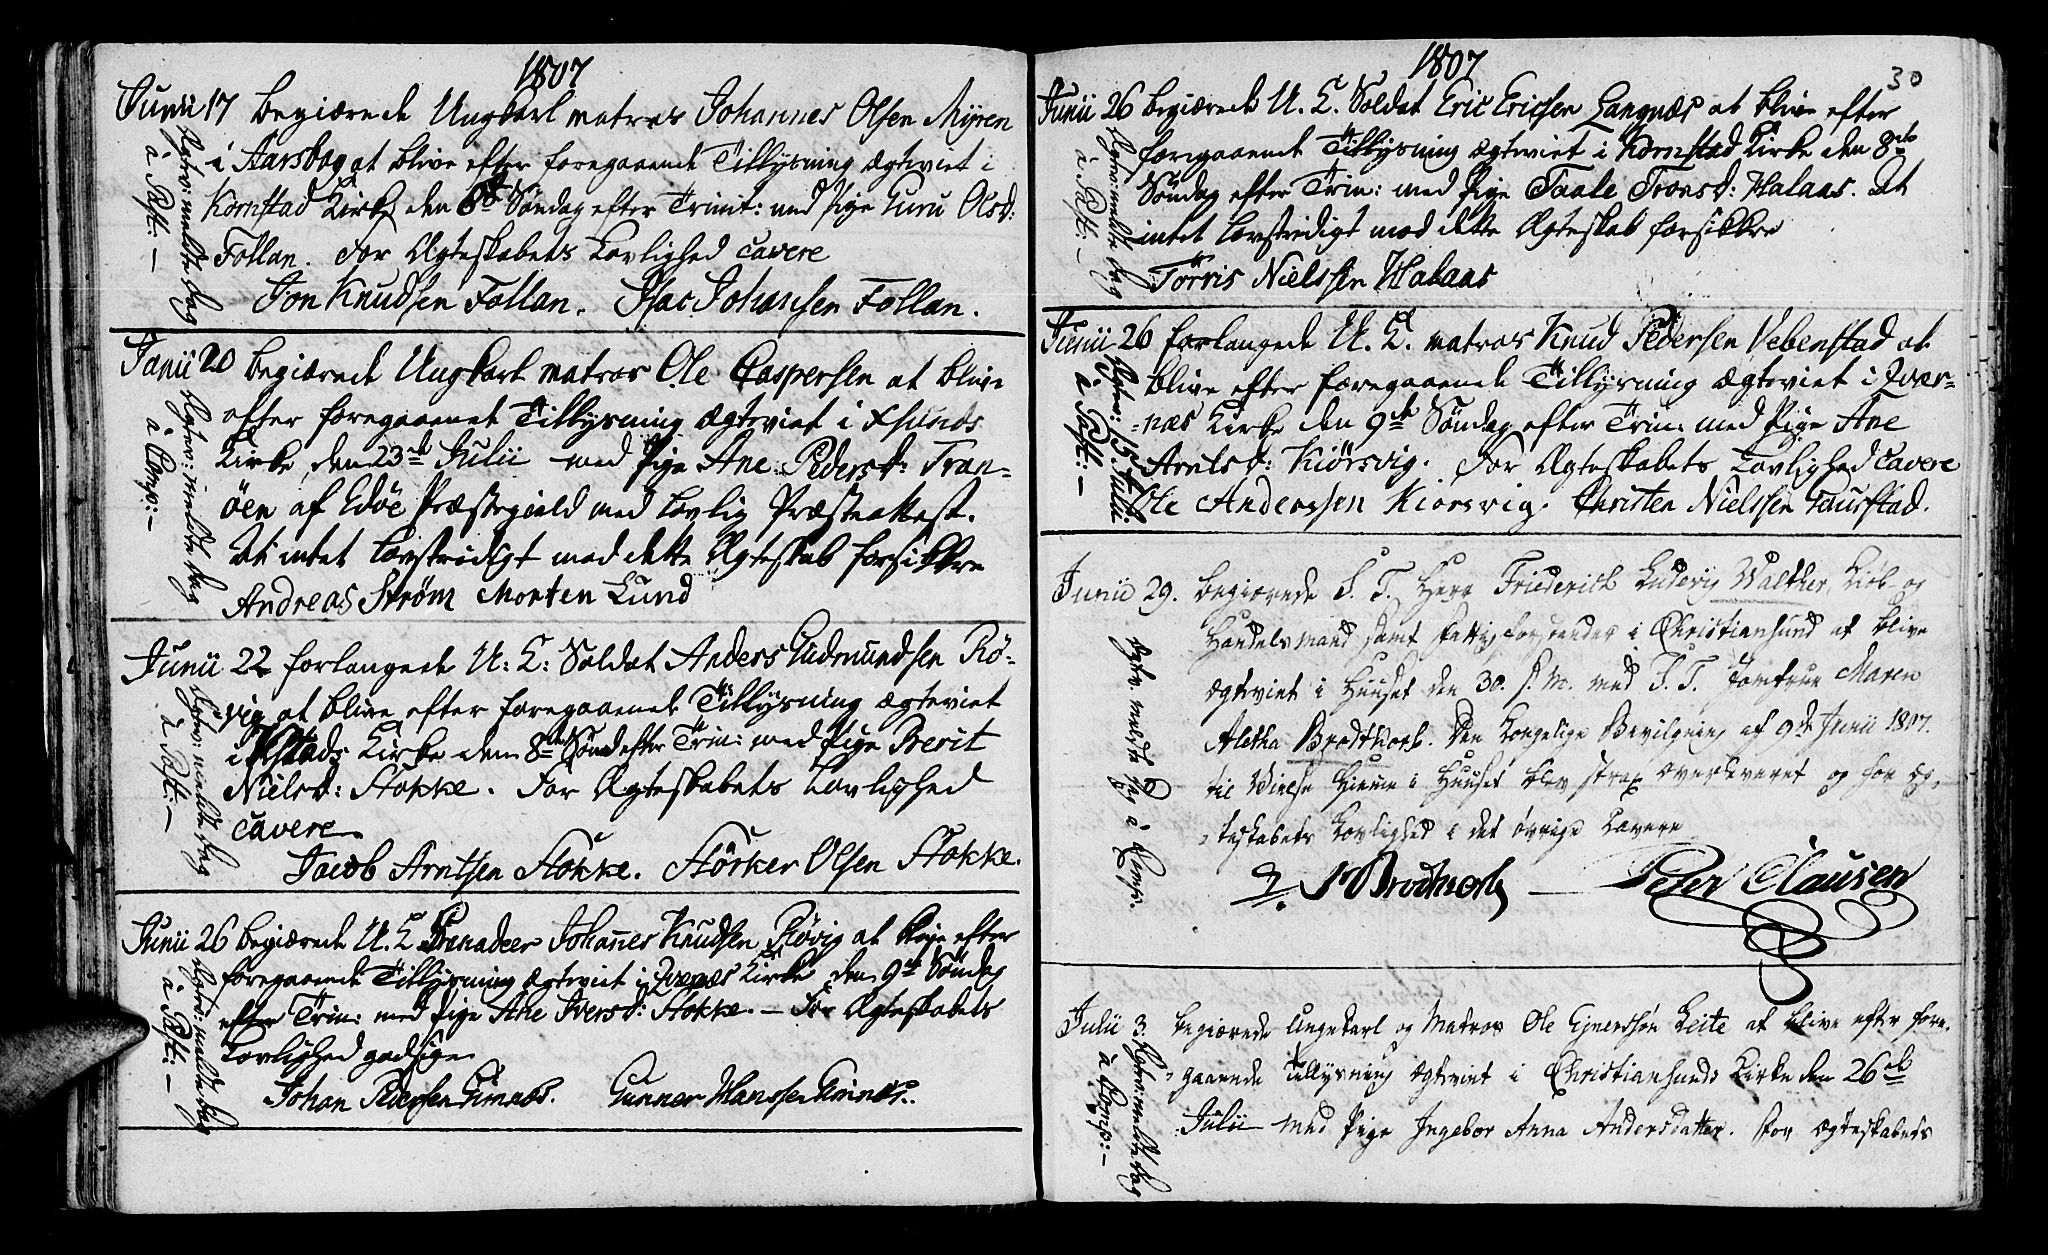 1807
Junii 17 begiærede Ungkarl matros Johannes Olsen Myren
i Aarsbog at blive efter foregaaende Tillysning ægteviet i
Kornstad Kirke den 8de Søndag efter Trinit: med Pige Guru Olsd:
Follan. For Ægteskabets Lovlighed cavere
Jon Knudsen Follan. Isac Johansen Follan.
Ægtev: meldte dag
à Past: —
Junii 20 begiærede Ungkarl matros Ole Caspersen at blive
efter foregaaende Tillysning ægteviet i
Kirke den 23de Julii med Pige Ane Pedersd: Tran-
öen af Edöe Præstegield med lovlig Præsteattest.
At intet lovstridigt mod dette Ægteskab forsikkre
Andreas Strøm Morten Lund
Ægtev: meldte dag
à Cons: —
Junii 22 forlangede U: K: Soldat Anders Gudmundsen Rö-
vig at blive efter foregaaende Tillysning ægteviet
i Kirke den 8de Sönd efter Trin: med Pige Berit
Nielsd: Stokke. For Ægteskabets Lovlighed
cavere
Jacob Arntsen Stokke. Störker Olsen Stokke.
Ægtev: meldte dag
à Past: —
Junii 26 begiærede U. K. Grenadeer Johannes Knudsen Rövig at blive efter
foregaaende Tillysning ægteviet i Qvernæs Kirke den 9de Söndag
efter Trin: med Pige Ane Iversd: Stokke. — For Ægteskabets
Lovlighed godsige
Johan Pedersen Gimnæs. Gunner Hanssen Gimnæs.
Ægtev: meldte dag
à Past: —
1807
30
Junii 26 begiærede U. K. Soldat Eric Ericsen Langnæs at blive efter
foregaaende Tillysning ægteviet i Kornstad Kirke den 8de
Söndag efter Trin: med Pige Taale Tronsd: Halaas. At
intet lovstridigt mod dette Ægteskab forsikkre
Törris Nielssen Halaas
Ægtev: meldte dag
à Past: —
Junii 26 forlangede U. K. matros Knud Pedersen Vebenstad at
blive efter foregaaende Tillysning ægteviet i Qvær-
-næs Kirke den 9de Söndag efter Trin: med Pige Ane
Arntsd: Kiörsvig. For Ægteskabets Lovlighed cavere
Ole Anderssen Kiorsvig. Christen Nielssen Gaustad.
Ægtev: Julii
à Past: —
Junii 29. begiærede S. T. Herr Friederich Ludevig Walther, Kiöb- og
Handelsmand samt i Christiansund at blive
ægteviet i Huuset den 30. s. M. med S. T. Jomfrue Maren
Aletha Brodtkorb. Den Kongelige Bevilgning af 9de Junii 1807.
til Vielse hiemme i Huuset blev strax overleveret og for Æg-
-teskabets Lovlighed i det øvrige Cavere
N Brodtkorb — Peter Clausen
Ægtv. meldte dag à Cons:
Julii 3. begiærede Ungekarl og Matros Ole Ejnersøn Leite at blive efter fore-
-gaaende Tillysning ægteviet i Christiansunds Kirke den 26de
Julii med Pige Ingebor Anna Andersdatter. For Ægteskabeds
Ægtev: meldte dag
à Cons: —